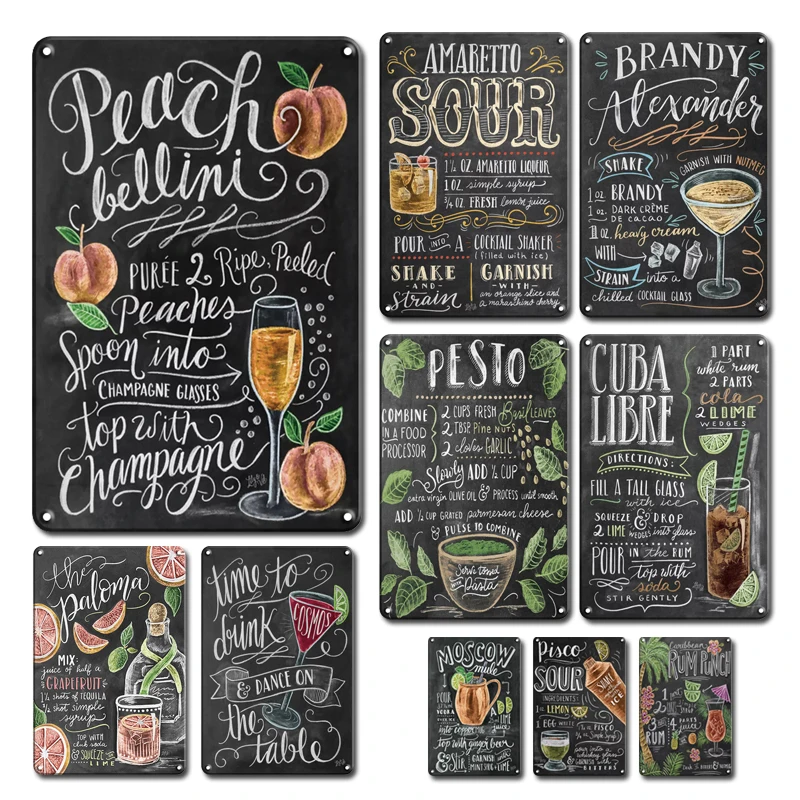 Peach
bellini
PURÉE 2 Ripe, Peeled
Peaches
Spoon into
CHAMPAGNE GLASSES
top with
Champagne
AMARETTO
SOUR
1 ½ OZ. AMARETTO LIQUEUR
1 OZ. simple syrup
¾ OZ. FRESH lemon juice
POUR INTO A COCKTAIL SHAKER
(filled with ice)
SHAKE
-AND-
Strain
GARNISH
-WITH-
an orange slice and
a maraschino cherry
BRANDY
Alexander
SHAKE
GARNISH WITH NUTMEG
1 oz. BRANDY
1 oz. DARK CRÈME
DE CACAO
1 oz. heavy cream
WITH
STRAIN into a
chilled COCKTAIL GLASS
PESTO
COMBINE
IN A FOOD
PROCESSOR
2 CUPS FRESH Basil LEAVES
2 TBSP. Pine NUTS
2 cloves GARLIC
Slowly ADD ½ CUP
extra virgin OLIVE OIL & PROCESS until smooth
ADD ½ CUP GRATED parmesan cheese
& PULSE TO COMBINE
Serve tossed
WITH Pasta
CUBA
LIBRE
1 PART
white rum
2 PARTS
cola
2 LIME
WEDGES
DIRECTIONS:
FILL A TALL GLASS
with ice
SQUEEZE & DROP
2 LIME WEDGES into glass
POUR IN the RUM
top with
soda
STIR GENTLY
the
paloma
MIX:
juice of half a
GRAPEFRUIT
1 ½ shots of TEQUILA
½ shot simple
syrup
TOP WITH
club soda
& SQUEEZE of
LIME
time to
drink
COSMOS
& DANCE ON
the
table
MOSCOW
mule
POUR
VODKA
LIME
top with ginger beer
& Stir
GARNISH with
MINT SPRIG & LIME
Pisco
SOUR
INGREDIENTS:
SHAKE
ICE
LEMON
1 EGG WHITE
PISCO
GARNISH WITH
BITTERS
Caribbean
RUM PUNCH
1 part
3 parts
RUM
juice